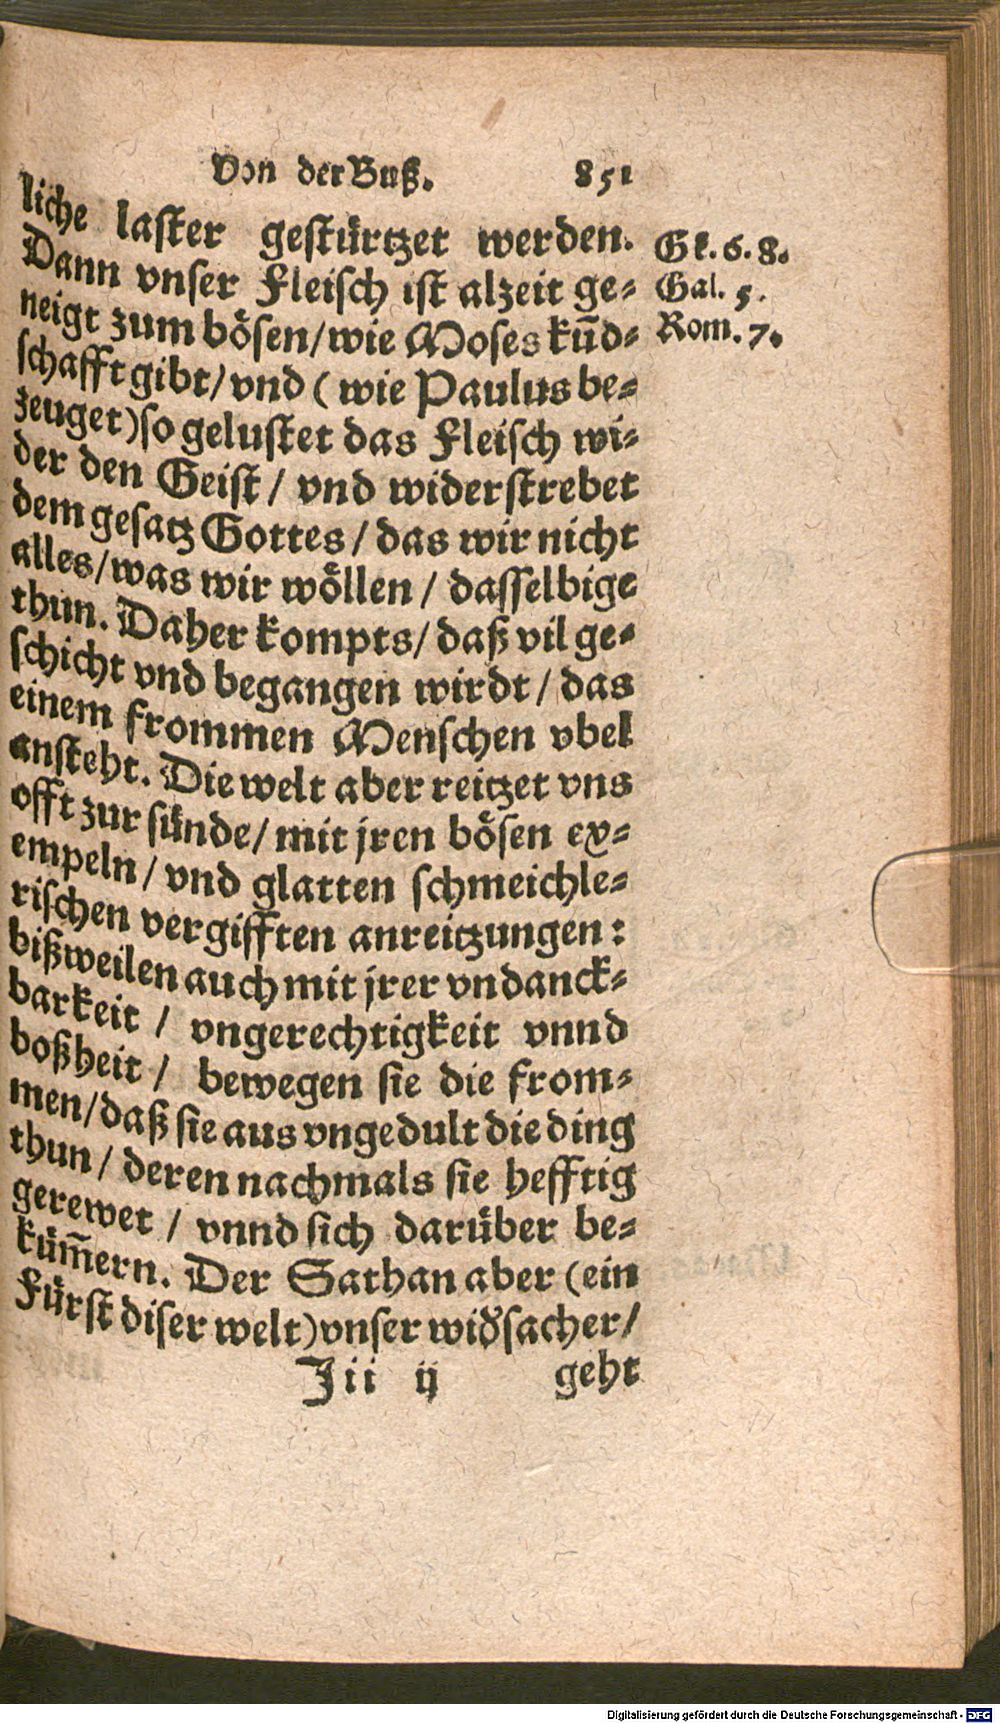 Von der Buß. 851
liche laster gestürtzet werden.
Dann vnser Fleisch ist alzeit ge-
neigt zum bösen/wie Moses kũd-
schafft gibt/vnd (wie Paulus be-
zeuget)so gelustet das Fleisch wi-
der den Geist/ vnd widerstrebet
dem gesatz Gottes/das wir nicht
alles/was wir wöllen/ dasselbige
thun. Daher kompts/daß vil ge-
schicht vnd begangen wirdt/das
einem frommen Menschen vbel
ansteht. Die welt aber reitzet vns
offt zur sünde/mit jren bösen ex-
empeln/vnd glatten schmeichle-
rischen vergifften anreitzungen:
bißweilen auch mit jrer vndanck-
barkeit / vngerechtigkeit vnnd
boßheit / bewegen sie die from-
men/daß sie aus vngedult die ding
thun/deren nachmals sie hefftig
gerewet / vnnd sich darüber be-
küm̃ern. Der Sathan aber (ein
Fürst diser welt)vnser widsacher/
Jii ij geht
Gē. 6. 8.
Gal. 5.
Rom. 7.
Digitalisierung gefördert durch die Deutsche Forschungsgemeinschaft - DFG